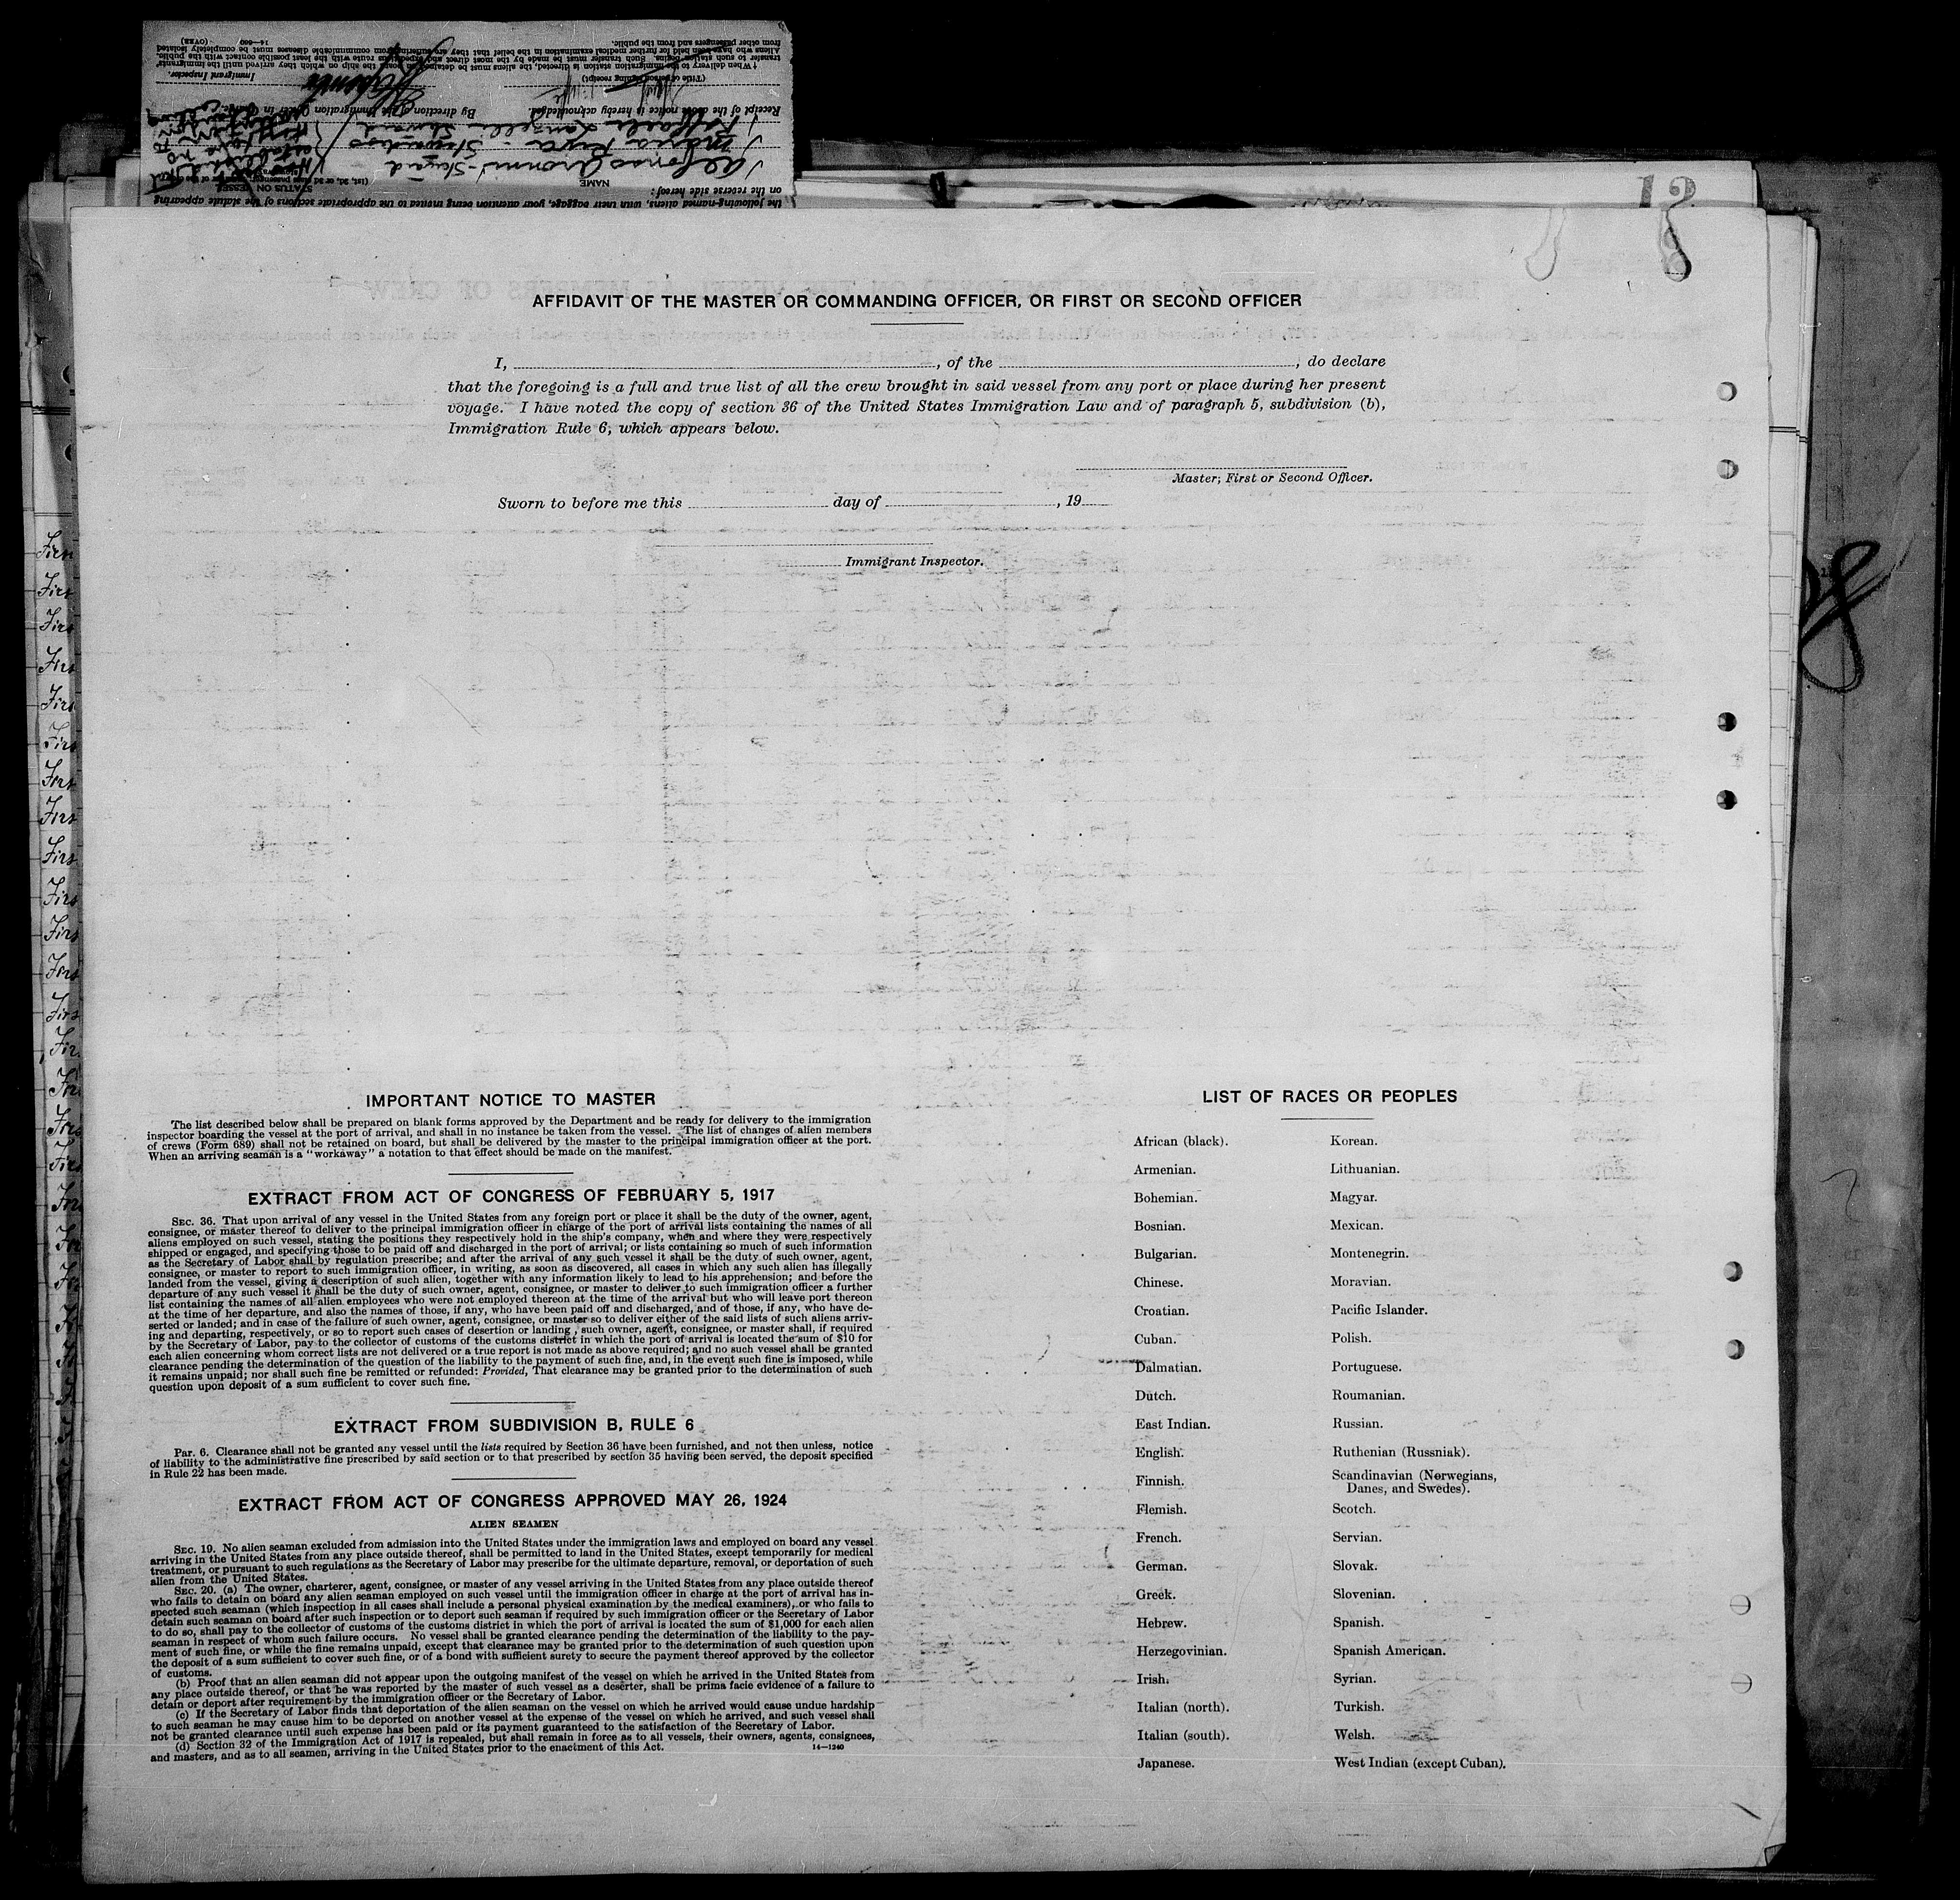 12
AFFIDAVIT OF THE MASTER OR COMMANDING OFFICER, OR FIRST OR SECOND OFFICER
I, , of the , do declare
that the foregoing is a full and true list of all the crew brought in said vessel from any port or place during her present
voyage. I have noted the copy of section 36 of the United States Immigration Law and of paragraph 5, subdivision (b),
Immigration Rule 6, which appears below.
Master, First or Second Officer.
Sworn to before me this day of , 19
Immigrant Inspector.
IMPORTANT NOTICE TO MASTER
The list described below shall be prepared on blank forms approved by the Department and be ready for delivery to the immigration
inspector boarding the vessel at the port of arrival, and shall in no instance be taken from the vessel. The list of changes of alien members
of crews (Form 689) shall not be retained on board, but shall be delivered by the master to the principal immigration officer at the port.
When an arriving seaman is a "workaway" a notation to that effect should be made on the manifest.
EXTRACT FROM ACT OF CONGRESS OF FEBRUARY 5, 1917
SEC. 36. That upon arrival of any vessel in the United States from any foreign port or place it shall be the duty of the owner, agent,
consignee, or master thereof to deliver to the principal immigration officer in charge of the port of arrival lists containing the names of all
aliens employed on such vessel, stating the positions they respectively hold in the ship's company, when and where they were respectively
shipped or engaged, and specifying those to be paid off and discharged in the port of arrival; or lists containing so much of such information
as the Secretary of Labor shall by regulation prescribe; and after the arrival of any such vessel it shall be the duty of such owner, agent,
consignee, or master to report to such immigration officer, in writing, as soon as discovered, all cases in which any such alien has illegally
landed from the vessel, giving a description of such alien, together with any information likely to lead to his apprehension; and before the
departure of any such vessel it shall be the duty of such owner, agent, consignee, or master to deliver to such immigration officer a further
list containing the names of all alien employees who were not employed thereon at the time of the arrival but who will leave port thereon
at the time of her departure, and also the names of those, if any, who have been paid off and discharged, and of those, if any, who have de-
serted or landed; and in case of the failure of such owner, agent, consignee, or master so to deliver either of the said lists of such aliens arriv-
ing and departing, respectively, or so to report such cases of desertion or landing, such owner, agent, consignee, or master shall, if required
by the Secretary of Labor, pay to the collector of customs of the customs district in which the port of arrival is located the sum of $10 for
each alien concerning whom correct lists are not delivered or a true report is not made as above required; and no such vessel shall be granted
clearance pending the determination of the question of the liability to the payment of such fine, and, in the event such fine is imposed, while
it remains unpaid; nor shall such fine be remitted or refunded: Provided, That clearance may be granted prior to the determination of such
question upon deposit of a sum sufficient to cover such fine.
EXTRACT FROM SUBDIVISION B, RULE 6
Par. 6. Clearance shall not be granted any vessel until the lists required by Section 36 have been furnished, and not then unless, notice
of liability to the administrative fine prescribed by said section or to that prescribed by section 35 having been served, the deposit specified
in Rule 22 has been made.
EXTRACT FROM ACT OF CONGRESS APPROVED MAY 26, 1924
ALIEN SEAMEN
SEC. 19. No alien seaman excluded from admission into the United States under the immigration laws and employed on board any vessel
arriving in the United States from any place outside thereof, shall be permitted to land in the United States, except temporarily for medical
treatment, or pursuant to such regulations as the Secretary of Labor may prescribe for the ultimate departure, removal, or deportation of such
alien from the United States.
SEC. 20. (a) The owner, charterer, agent, consignee, or master of any vessel arriving in the United States from any place outside thereof
who fails to detain on board any alien seaman employed on such vessel until the immigration officer in charge at the port of arrival has in-
spected such seaman (which inspection in all cases shall include a personal physical examination by the medical examiners), or who fails to
detain such seaman on board after such inspection or to deport such seaman if required by such immigration officer or the Secretary of Labor
to do so, shall pay to the collector of customs of the customs district in which the port of arrival is located the sum of $1,000 for each alien
seaman in respect of whom such failure occurs. No vessel shall be granted clearance pending the determination of the liability to the pay-
ment of such fine, or while the fine remains unpaid, except that clearance may be granted prior to the determination of such question upon
the deposit of a sum sufficient to cover such fine, or of a bond with sufficient surety to secure the payment thereof approved by the collector
of customs.
(b) Proof that an alien seaman did not appear upon the outgoing manifest of the vessel on which he arrived in the United States from
any place outside thereof, or that he was reported by the master of such vessel as a deserter, shall be prima facie evidence of a failure to
detain or deport after requirement by the immigration officer or the Secretary of Labor.
(c) If the Secretary of Labor finds that deportation of the alien seaman on the vessel on which he arrived would cause undue hardship
to such seaman he may cause him to be deported on another vessel at the expense of the vessel on which he arrived, and such vessel shall
not be granted clearance until such expense has been paid or its payment guaranteed to the satisfaction of the Secretary of Labor.
(d) Section 32 of the Immigration Act of 1917 is repealed, but shall remain in force as to all vessels, their owners, agents, consignees,
and masters, and as to all seamen, arriving in the United States prior to the enactment of this Act. 14—1240
LIST OF RACES OR PEOPLES
African (black).
Armenian.
Bohemian.
Bosnian.
Bulgarian.
Chinese.
Croatian.
Cuban.
Dalmatian.
Dutch.
East Indian.
English.
Finnish.
Flemish.
French.
German.
Greek.
Hebrew.
Herzegovinian.
Irish.
Italian (north).
Italian (south).
Japanese.
Korean.
Lithuanian.
Magyar.
Mexican.
Montenegrin.
Moravian.
Pacific Islander.
Polish.
Portuguese.
Roumanian.
Russian.
Ruthenian (Russniak).
Scandinavian (Norwegians,
Danes, and Swedes).
Scotch.
Servian.
Slovak.
Slovenian.
Spanish.
Spanish American.
Syrian.
Turkish.
Welsh.
West Indian (except Cuban).